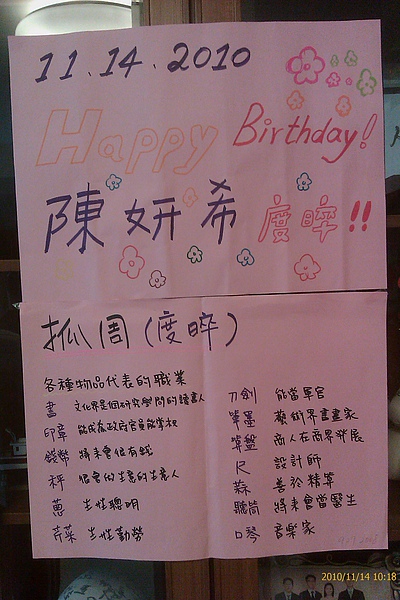 11.14.2010
Happy Birthday!
陳妍希 度晬!!
抓周(度晬)
各種物品代表的職業
書 文化界是個研究學問的讀書人
印章 能成為政府官員能掌權
錢幣 將來會很有錢
秤 很會做生意的生意人
蔥 生性聰明
芹菜 生性勤勞
刀劍 能當軍官
筆墨 藝術界畫畫家
算盤 商人在商界發展
尺 設計師
蒜 善於精算
聽筒 將來會當醫生
口琴 音樂家
2010/11/14 10:18